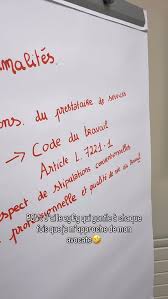 malités.
ons. du prestataire de services
→ Code du travail
Article L. 7221-1
spect de stipulations conventionnelles
professionnelle et qualité de son du travail
à l'ego qui gonfle à chaque
fois que je m'approche de mon
avocate